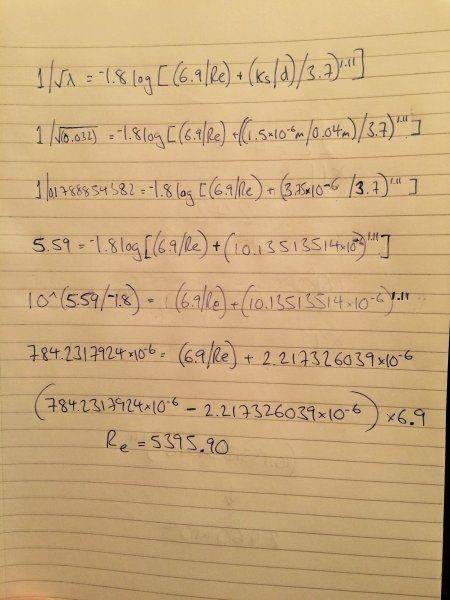 1/√λ = -1.8log[(6.9/Re) + (ks/d)/3.7)^1.11]
1/√(0.032) = -1.8log[(6.9/Re) + ((1.5×10^-6m/0.04m)/3.7)^1.11]
1/0.1788854382 = -1.8log[(6.9/Re) + (3.75×10^-6/3.7)^1.11]
5.59 = -1.8log[(6.9/Re) + (10.13513514×10^-6)^1.11]
10^(5.59/-1.8) = (6.9/Re) + (10.13513514×10^-6)^1.11
784.2317924×10^-6 = (6.9/Re) + 2.217326039×10^-6
(784.2317924×10^-6 - 2.217326039×10^-6) × 6.9
Re = 5395.90